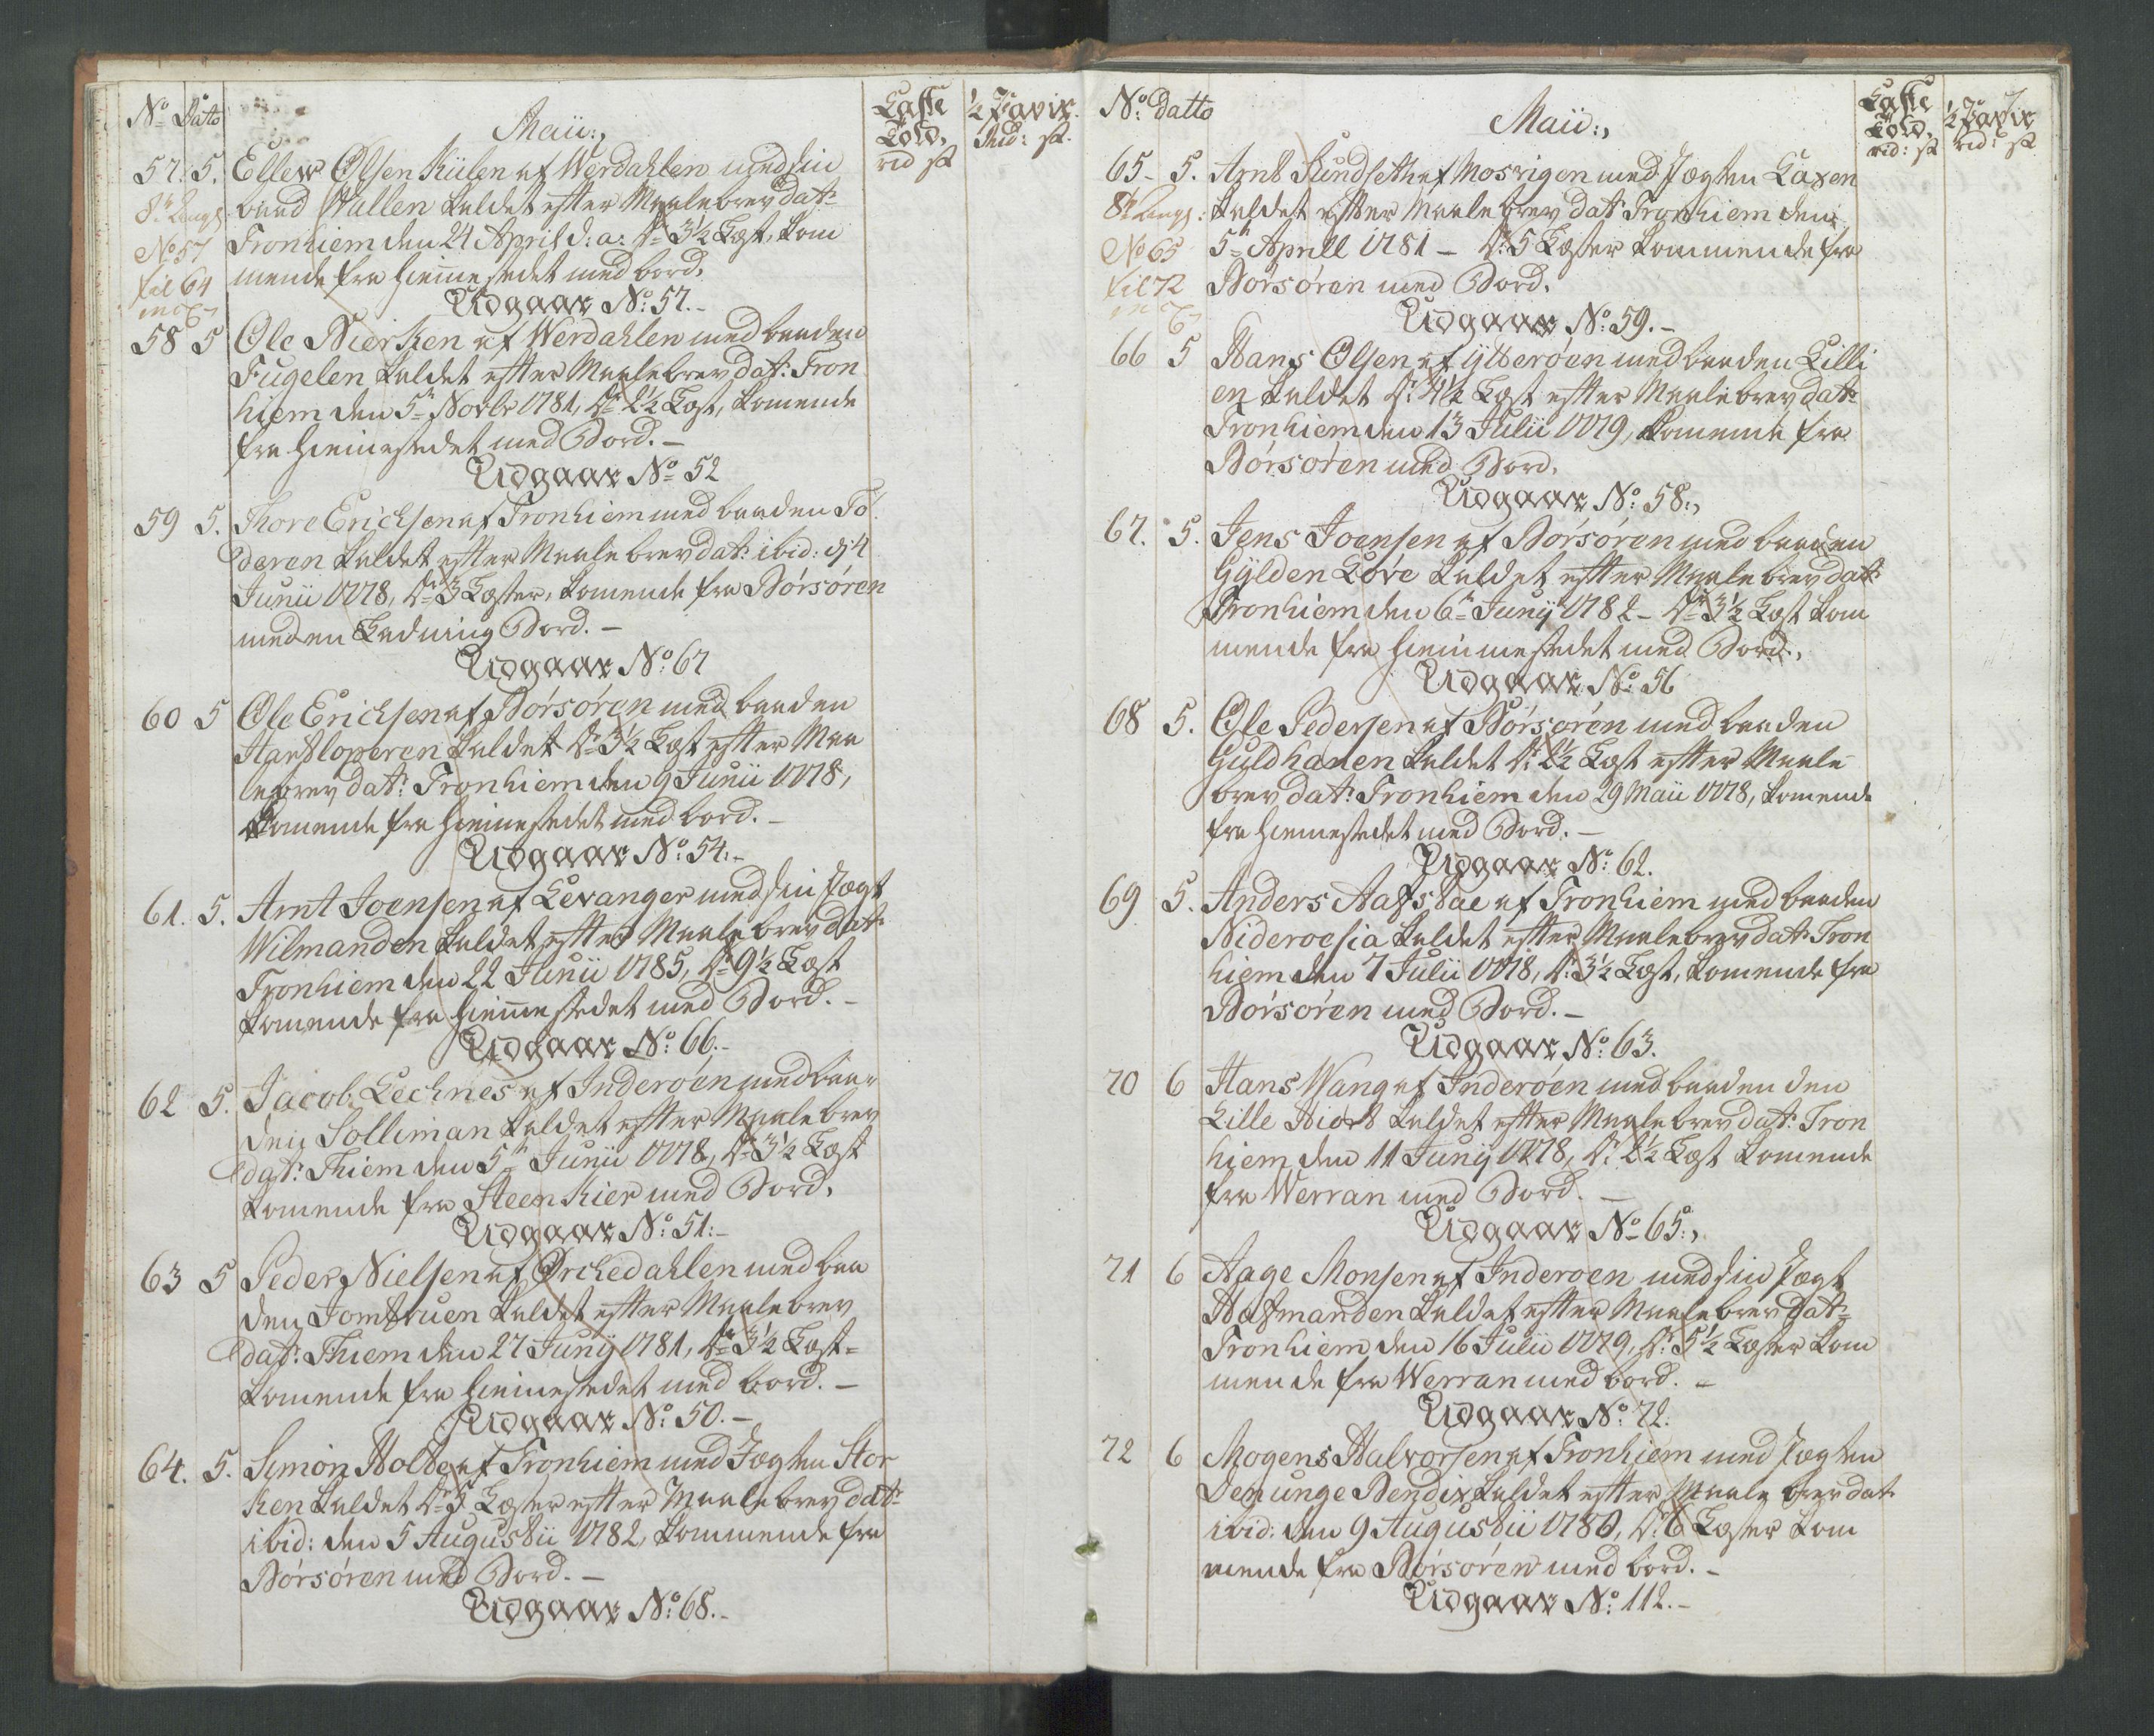 No Dato
Maii:,
Laste
Told,
rd ſz
½ Tavix
Rd: ſz.
57. 5. Ellew Olsen Kulen af Werdahlen med sin
baad Wallen kaldet efter Maalebrev dat:
Tronhiem den 24 April d: a: Dr 3½ Læst, kom
mende fra hiemmestedet med bord,
Udgaar No: 57.-
No 57
til 64
58 5 Ole Nierken af Werdahlen med baaden
Fugelen kaldet efter Maalebrev dat: Tron
hiem den 5te Novbr 1781, Dr 2½ Læst, komende
fra hiemestedet med Bord. -
Udgaar No 52
59 5. Thore Erichsen af Tronhiem med baaden To
deren kaldet efter Maalebrev dat: ibid: d: 4
Junii 1778, Dr 3 Læster, komende fra Børsøren
med en Ladning Bord. -
Udgaar No: 67
60 5 Ole Erichsen af Børsøren med baaden
Hartloperen kaldet Dr 3½ Læst efter Maa
lebrev dat: Tronhiem den 9 Junii 1778,
komende fra hiemestedet med bord. -
Udgaar No: 54:-
61. 5. Arnt Joensen af Levanger med sin Jægt
Wilmanden kaldet efter Maalebrev dat:
Tronhiem den 22 Junii 1785, Dr 9½ Læst
komende fra hiemmestedet med Bord. -
Udgaar No: 66.-
62 5. Jacob Lechnes af Inderøen med baa-
den Solliman kaldet efter Maalebrev
dat: Thiem den 5te Junii 1778, Dr 3½ Læst
komende fra Steenkier med Bord,
Udgaar No: 51:-
63 5 Peder Nielsen af Ørchedahlen med baa
den Jomfruen kaldet efter Maalebrev
dat: Thiem den 27 Junij 1781, Dr 3½ Læst-
komende fra hiemmestedet med bord. -
Udgaar No: 50. -
64. 5. Simon Holte af Tronhiem med Jægten Stor
ken kaldet Dr 5 Læster efter Maalebrev dat:
ibid: den 5 Augustii 1782, kommende fra
Børsøren med Bord. -
Udgaar No: 68.-
No: datto
Maii:,
Laste
Told,
rd: ſz
½ Tavix
rd: ſz
65- 5. Arnt Sundseth af Mosvigen med Jægten Laxen
kaldet efter Maalebrev dat: Tronhiem den
5te Aprill 1781 - Dr: 5 Læster kommende fra
Børsøren med Bord,
Udgaar No: 59.-
No 65
til 72
66 5 Hans Olsen af Ytterøen med baaden Lilli
en kaldet Dr: 4½ Læst efter Maalebrev dat:
Tronhiem den 13 Julii 1779, komende fra
Børsøren med Bord,
Udgaar No: 58:,
67. 5. Jens Joensen af Børsøren med baaden
Gylden Løve kaldet efter Maalebrev dat:
Tronhiem den 6te Junij 1782 - Dr 3½ Læst kom
mende fra hiemmestedet med Bord.,
Udgaar No: 56
68 5. Ole Pedersen af Børsøren med baaden
Guldhanen kaldet Dr: 2½ Læst efter Maale
brev dat: Tronhiem den 29 Maii 1778, komende
fra hiemestedet med Bord. -
Udgaar No: 62.
69 5. Anders Aafstae af Tronhiem med baaden
Niderosia kaldet efter Maalebrev dat: Tron
hiem den 7 Julii 1778, Dr: 3½ Læst, komende fra
Børsøren med Bord. -
Udgaar No: 63.
70 6 Hans Wang af Inderøen med baaden den
Lille Hiort kaldet efter Maalebrev dat: Tron
hiem den 11 Junij 1778, Dr: 2½ Læst komende
fra Werran med Bord. -
Udgaar No 65:,
71 6 Aage Monsen af Inderøen med sin Jægt
Hafmanden kaldet efter Maalebrev dat:
Tronhiem den 16 Julii 1779, Dr: 5½ Læster kom
mende fra Werran med bord. -
Udgaar No: 72.
72 6 Mogens Halvorsen af Tronhiem med Jægten
Den unge Bendix kaldet efter Maalebrev dat:
ibid: den 9 Augustii 1780, Dr: 6 Læster kom
mende fra Børsøren med bord. -
Udgaar No: 112.-